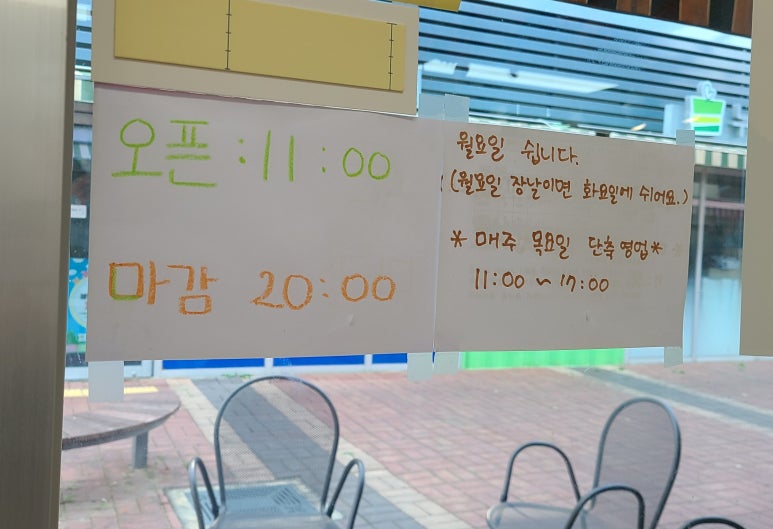 오픈 : 11 : 00
마감 20:00
월요일 쉽니다.
(월요일 장날이면 화요일에 쉬어요.)
* 매주 목요일 단축영업 *
11:00 ~ 17:00